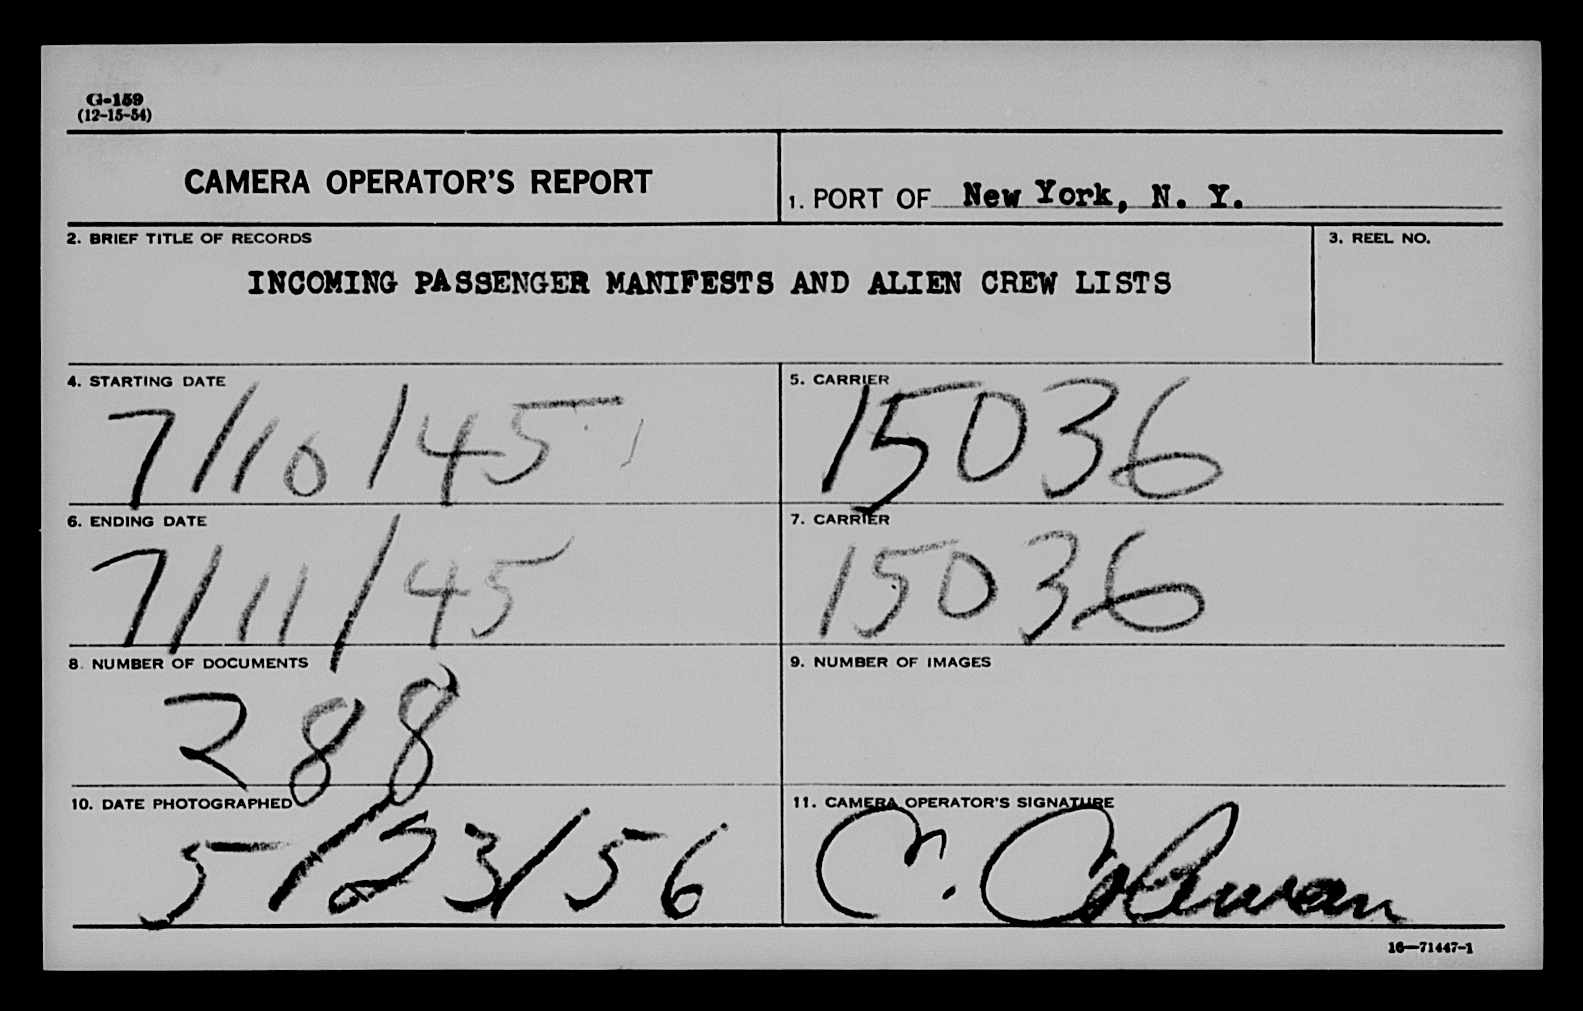 G-159
(12-15-54)
CAMERA OPERATOR'S REPORT
1. PORT OF New York, N. Y.
2. BRIEF TITLE OF RECORDS
INCOMING PASSENGER MANIFESTS AND ALIEN CREW LISTS
3. REEL NO.
4. STARTING DATE
7/10/45
5. CARRIER
15036
6. ENDING DATE
7/11/45
7. CARRIER
15036
8. NUMBER OF DOCUMENTS
288
9. NUMBER OF IMAGES
10. DATE PHOTOGRAPHED
5/23/56
11. CAMERA OPERATOR'S SIGNATURE
C. Coleman
16—71447-1